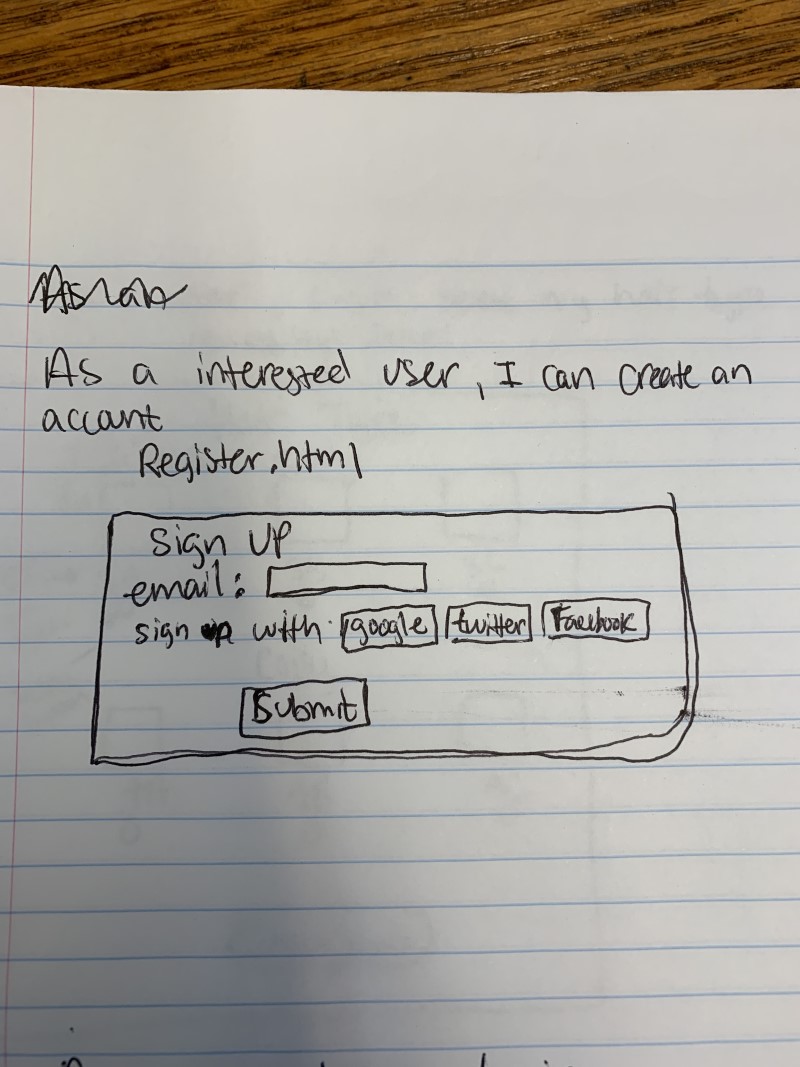 As a interested user, I can create an
accant
Register.html
Sign UP
email:
sign up with: google twitter Facebook
Submit